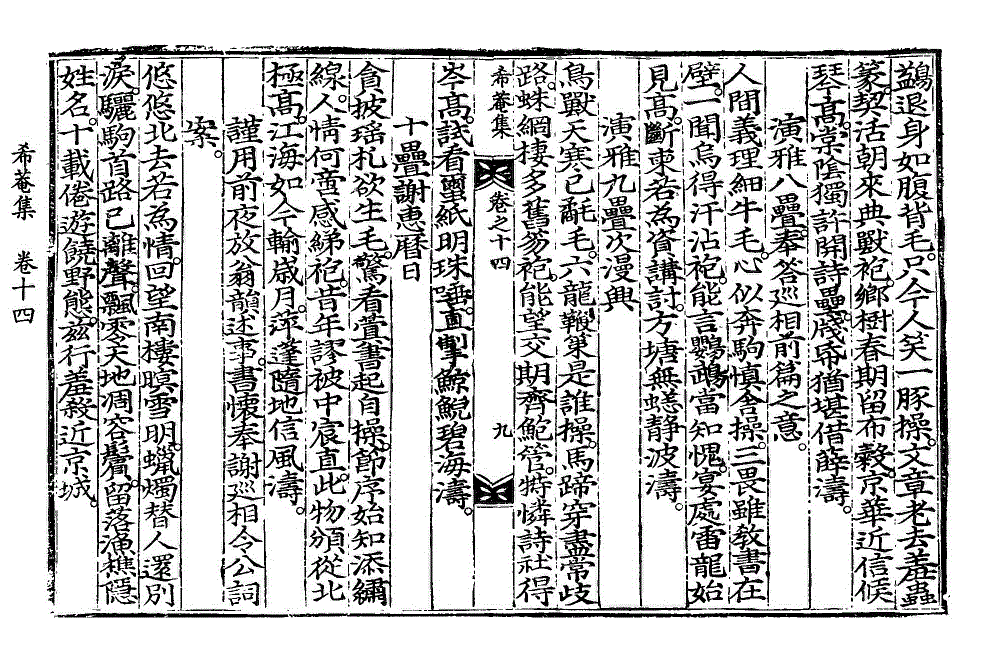 鷁退身如腹背毛。只今人笑一豚操。文章老去羞蟲
篆。契活朝來典獸袍。鄕樹春期留布穀。京華近信候
琴高。棠陰獨許開詩壘。歲帋猶堪借薛濤。
演雅八疊。奉答巡相前篇之意。
人間義理細牛毛。心似奔駒愼舍操。三畏雖敎書在
壁。一聞烏得汗沾袍。能言鸚鵡當知愧。宴處雷龍始
見高。斷束若爲資講討。方塘無蟋靜波濤。
演雅九疊次漫興
鳥獸天寒已氄毛。六龍鞭策是誰操。馬蹄穿盡常歧
路。蛛網棲多舊笏袍。能望交期齊鮑管。特憐詩社得
希菴集 卷之十四 九
岑高。試看蠻紙明珠唾。直掣鯨鯢碧海濤。
十疊謝惠曆日
貪披瑤札欲生毛。驚看蓂書起自操。節序始知添繡
線。人情何啻感綈袍。昔年謬被中宸直。此物頒從北
極高。江海如今輸歲月。萍蓬隨地信風濤。
謹用前夜放翁韻述事。書懷奉謝巡相令公詞
案。
悠悠北去若爲情。回望南樓暝雪明。蠟燭替人還別
淚。驪駒首路已離聲。飄零天地凋容鬢。留落漁樵隱
姓名。十載倦遊饒野態。茲行羞殺近京城。
希菴集 卷十四